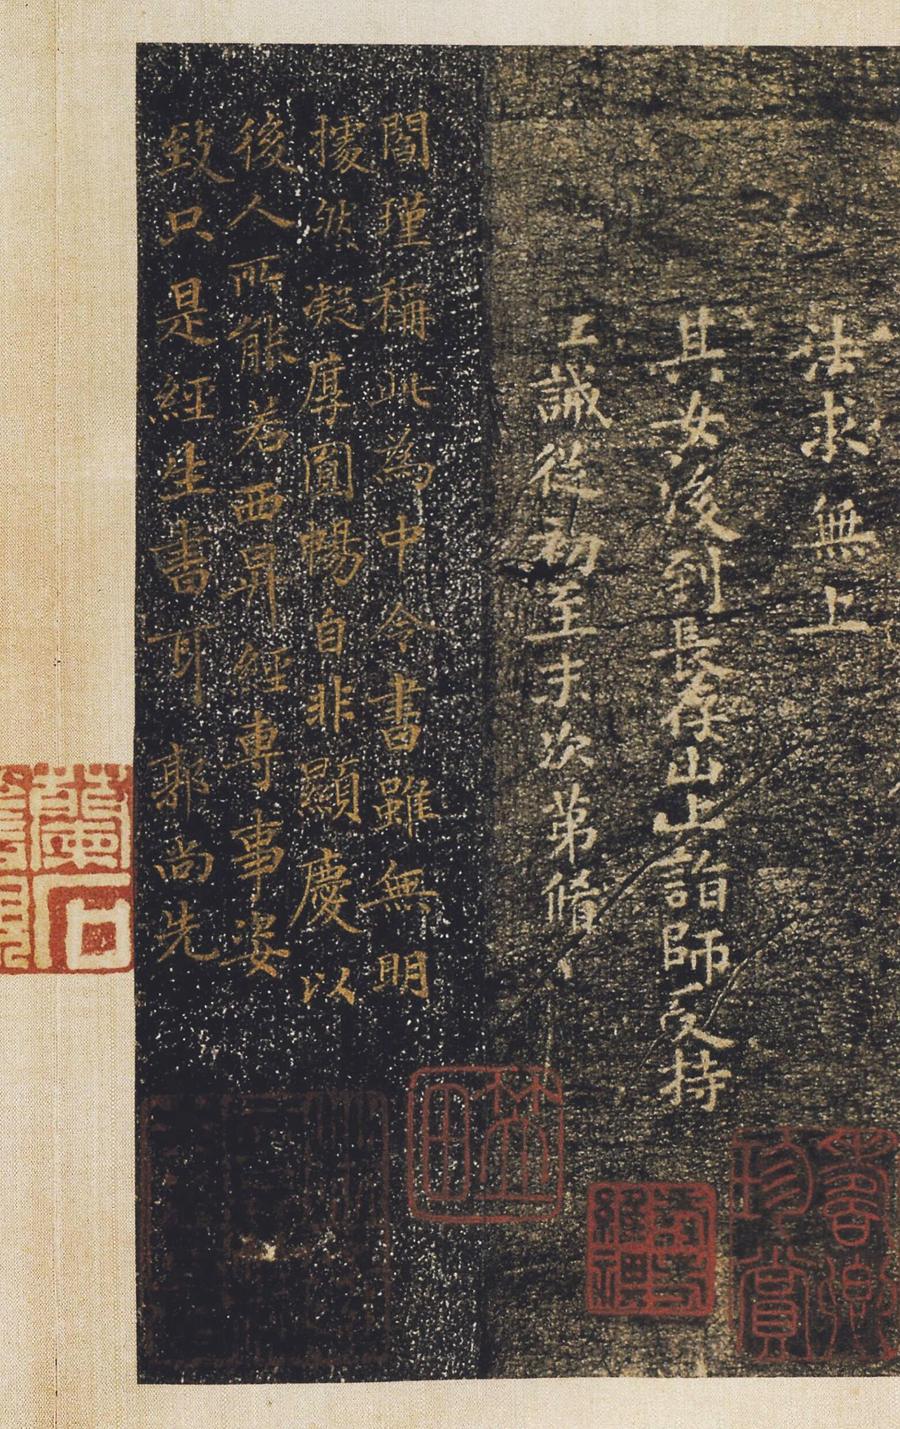 法求無上
其女後到長存山上詣師受持
上誡從初至末次第脩
閻瑾稱此為中令書雖無明
據然凝厚圓暢自非顯慶以
後人所能若西昇經專事姿
致只是經生書耳 郭尚先
蘭石